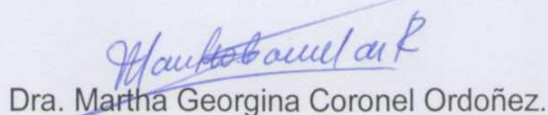 Dra. Martha Georgina Coronel Ordoñez.